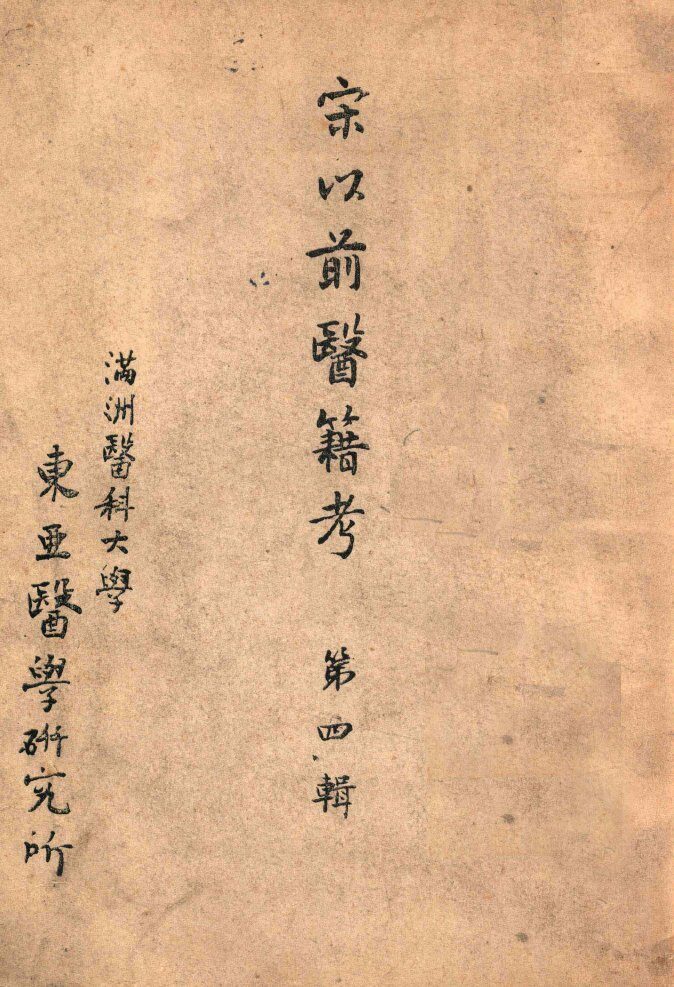 宋以前醫籍考 第四輯
滿洲醫科大學
東亞醫學研究所